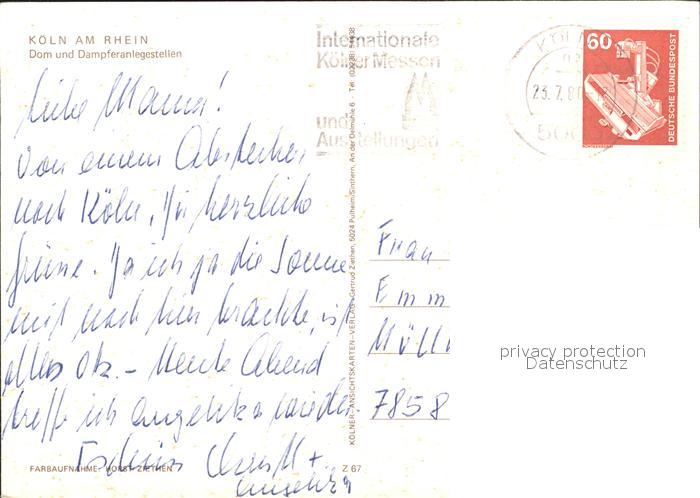 KÖLN AM RHEIN
Dom und Dampferanlegestellen
Liebe Mama!
Von einem Abstecher
nach Köln, Dir herzliche
Grüsse. Da ich ja die Sonne
mit nach hier brachte, ist
alles ok. – Heute Abend
treffe ich Angelika wieder.
+
Angelika
FARBAUFNAHME: HORST ZIETHEN
Z 67
KÖLNER-ANSICHTSKARTEN-VERLAG Gertrud Ziethen, 5024 Pulheim/Sinthern, An der Ölmühle 6
Internationale
Kölner Messen
und
Ausstellungen
KÖLN
60
DEUTSCHE BUNDESPOST
Frau
Emm
Müll
7858
privacy protection
Datenschutz